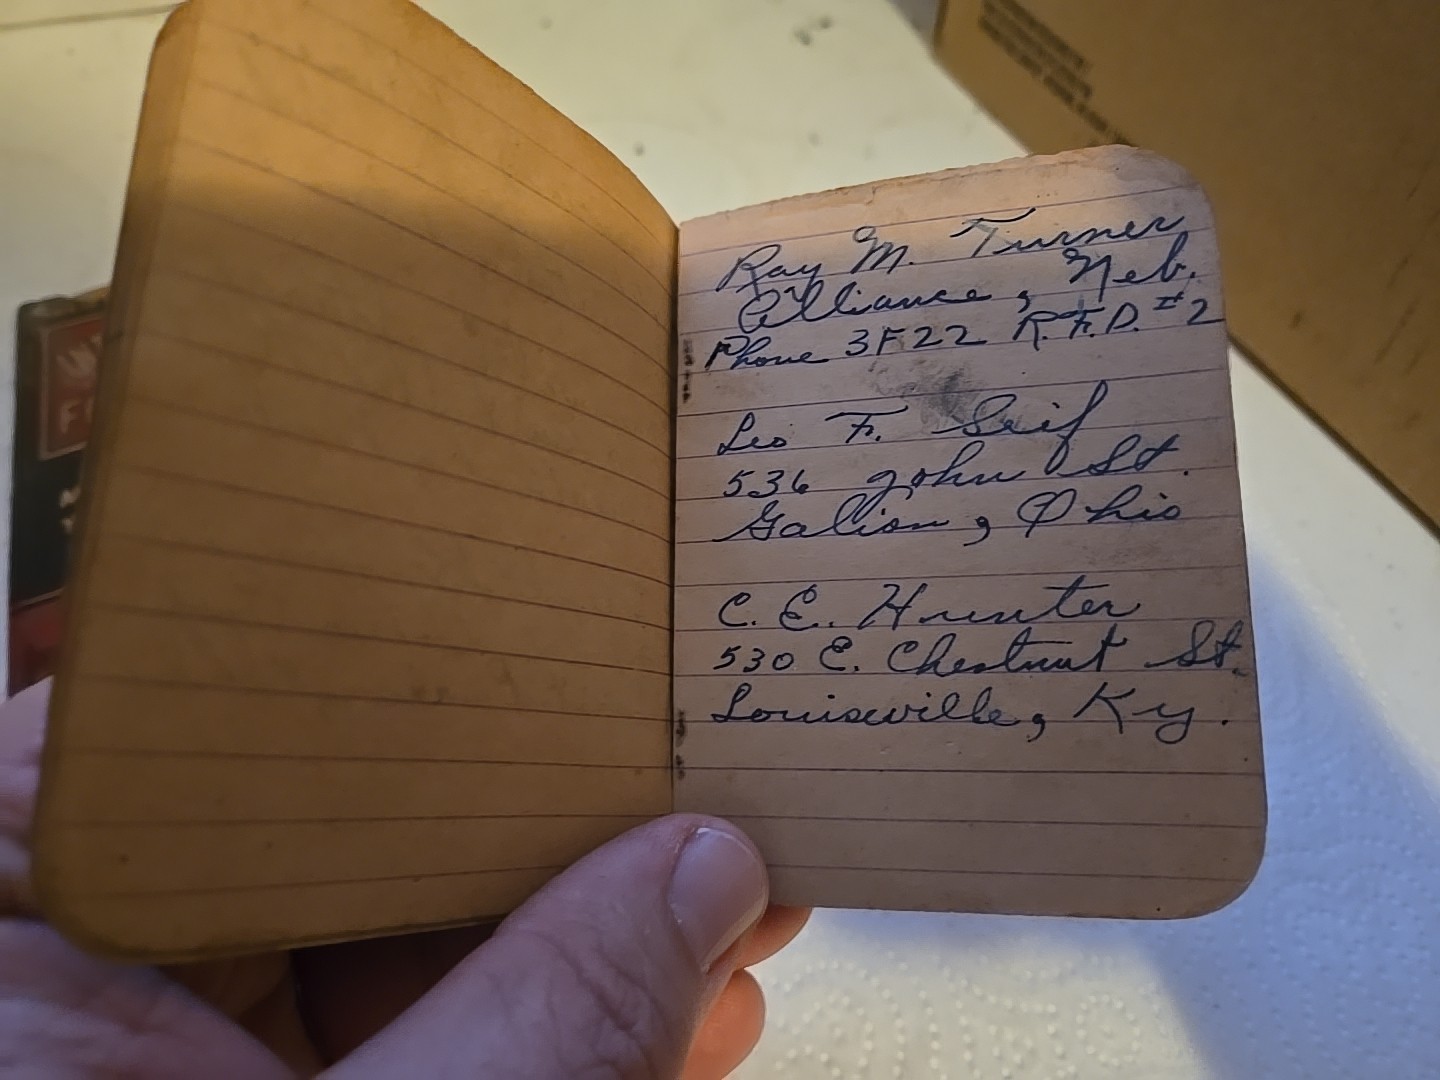 Ray M. Turner
Alliance, Neb.
Phone 3F22 R.F.D. #2
Leo F. Seif
536 John St.
Galion, Ohio
C. E. Hunter
530 E. Chestnut St.
Louisville, Ky.